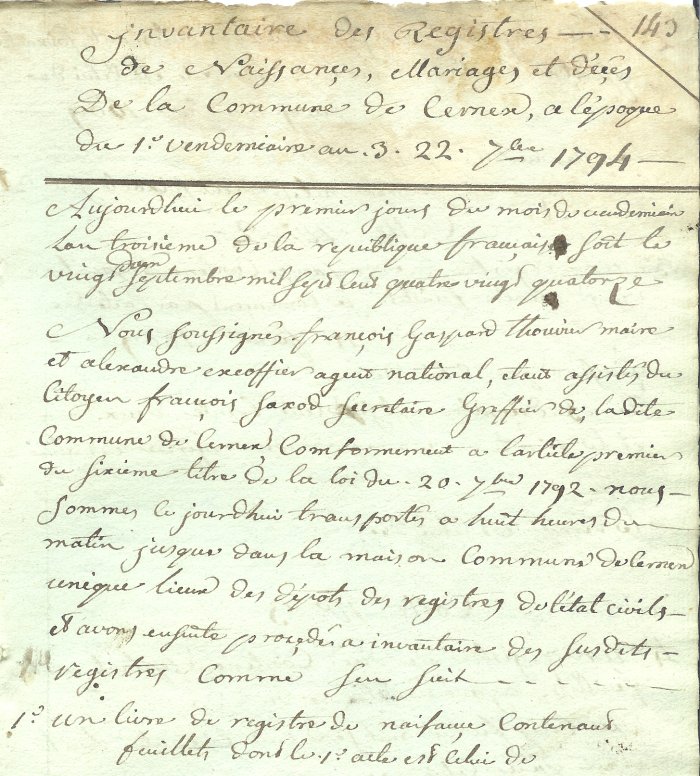 143
Invantaire des Registres
de Naissançes, Mariages et déçés
De la Commune de Cernex, a lépoque
du 1.er vendemiaire an .3. 22. 7bre 1794
Aujourdhui le premier jours du mois de vendemiair
Lan troisième de la republique française soit le
vingt deux Septembre mil sept Cent quatre vingt quatorze
Nous Soussignés françois Gaspard thouvier maire
et alexandre excoffier agent national, etant assistés du
Citoyen françois Saxod Secretaire Greffier de ladite
Commune de Cernex, Comformement a l'article premier
du Sixieme titre de la loi du .20. 7bre 1792. nous
Sommes Ce jourdhui transportés a huit heures du
matin jusque dans la maison Commune de Cernex
unique lieux des dépots des registres de l'état Civils
et avons ensuite procédés a invantaire des Susdits
registres Comme Sen Suit
1.o un livre de registre de naissance Contenant
feuillets dont le 1.er acte est Celui de